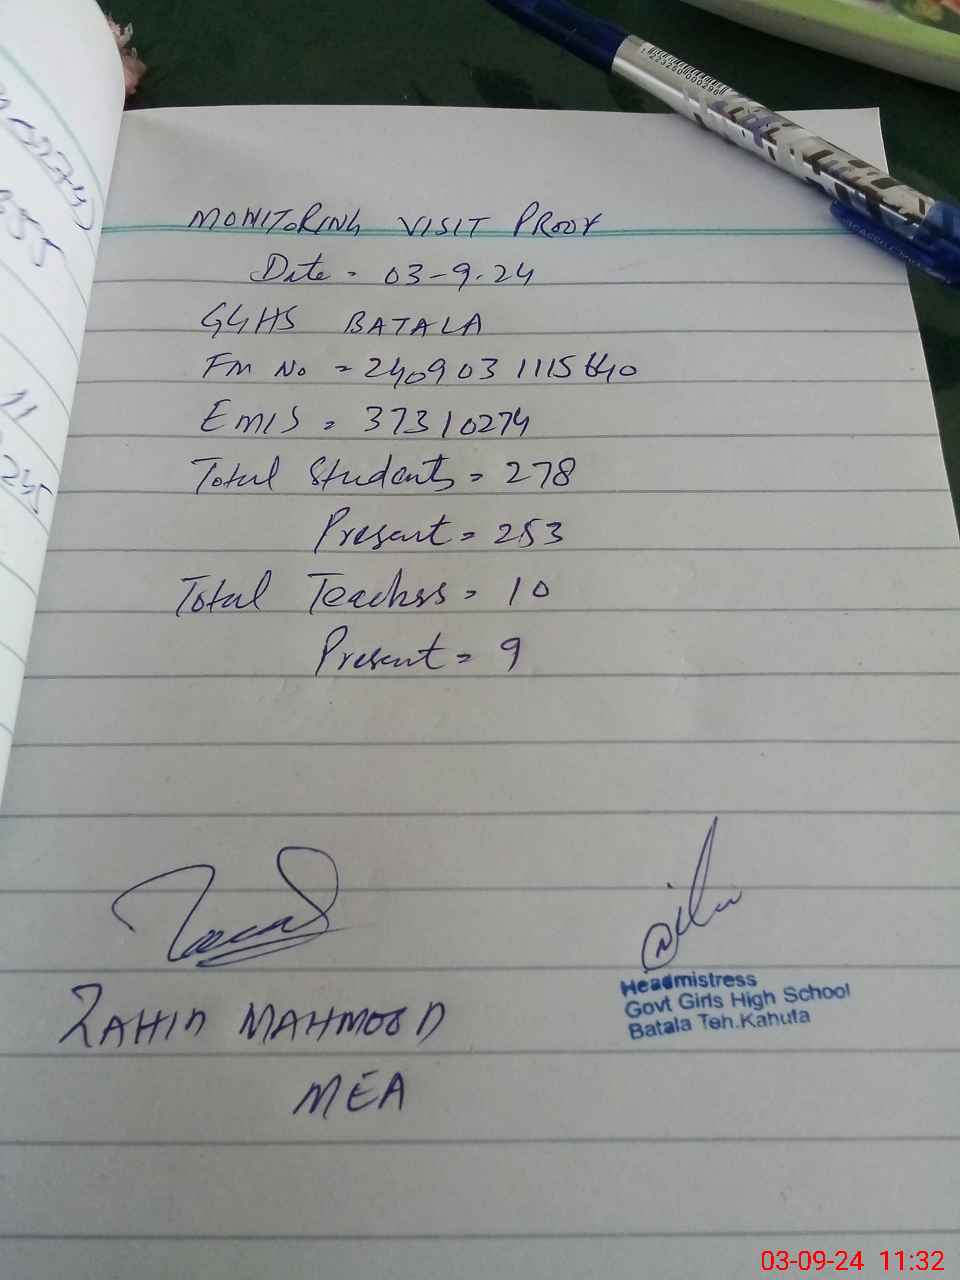 MONITORING VISIT PROOF
Date = 03-9-24
GGHS BATALA
Fm No = 2409031115640
EMIS = 37310274
Total Students = 278
Present = 253
Total Teachss = 10
Present = 9
ZAHID MAHMOOD
MEA
Headmistress
Govt Girls High School
Batala Teh.Kahuta
03-09-24 11:32